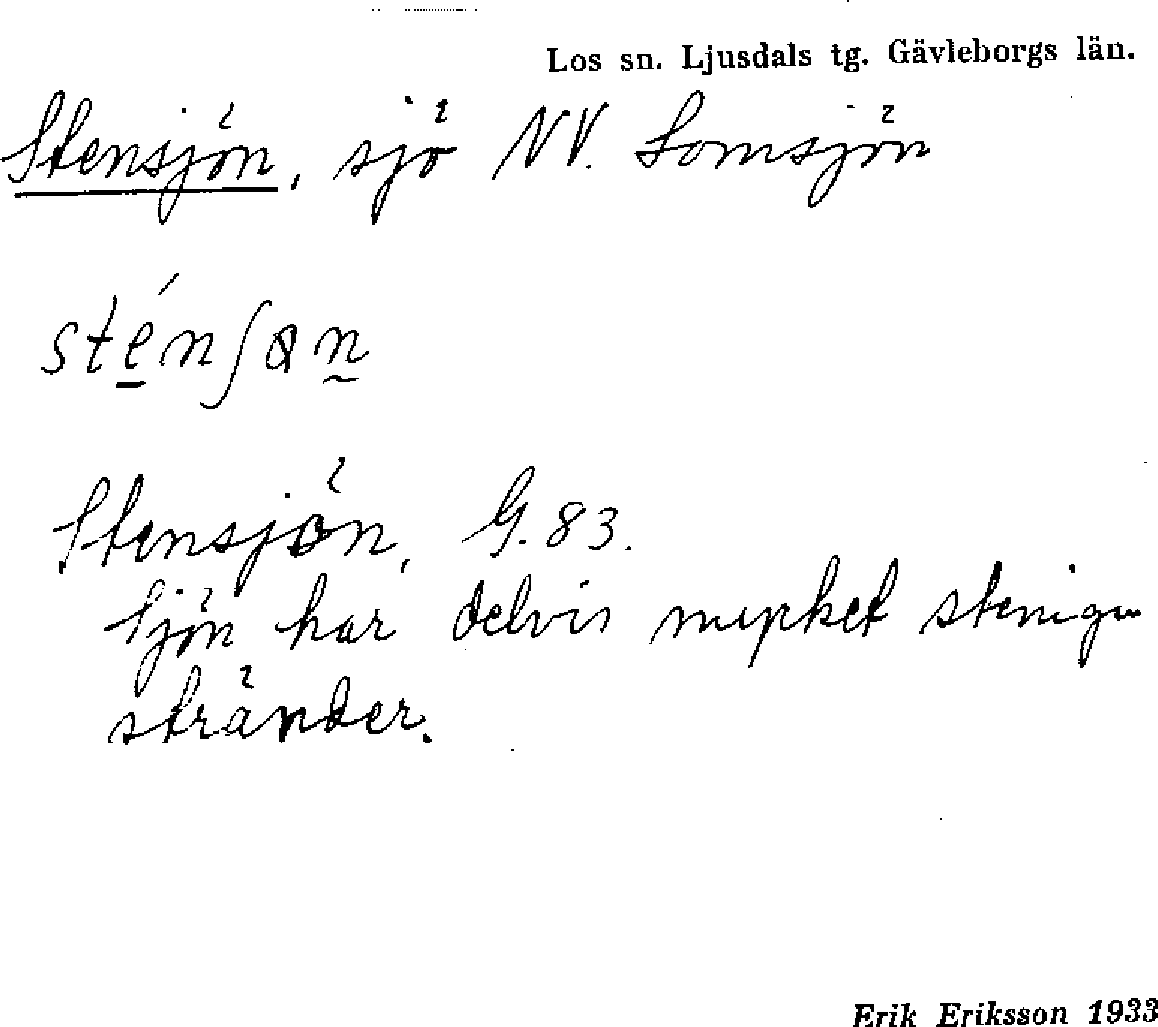 Los sn. Ljusdals tg. Gävleborgs län.
Stensjön, sjö NV. Lomsjön
sténʃən
Stensjön, G. 83.
Sjön har delvis mycket steniga
stränder.
Erik Eriksson 1933